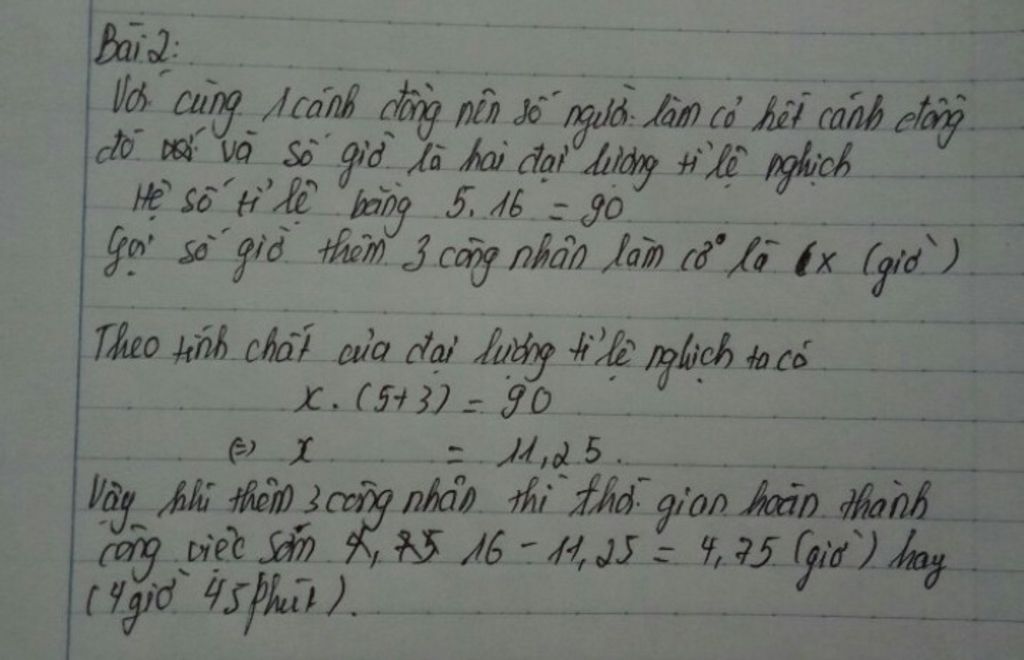 Bài 2:
Với cùng 1 cánh đồng nên số người làm cỏ hết cánh đồng
đó và số giờ là hai đại lượng tỉ lệ nghịch
Hệ số tỉ lệ bằng 5.16 = 90
Gọi số giờ thêm 3 công nhân làm cỏ là x (giờ)
Theo tính chất của đại lượng tỉ lệ nghịch ta có
x.(5+3) = 90
(=) x = 11,25.
Vậy khi thêm 3 công nhân thì thời gian hoàn thành
công việc sớm 16 - 11,25 = 4,75 (giờ) hay
(4 giờ 45 phút).